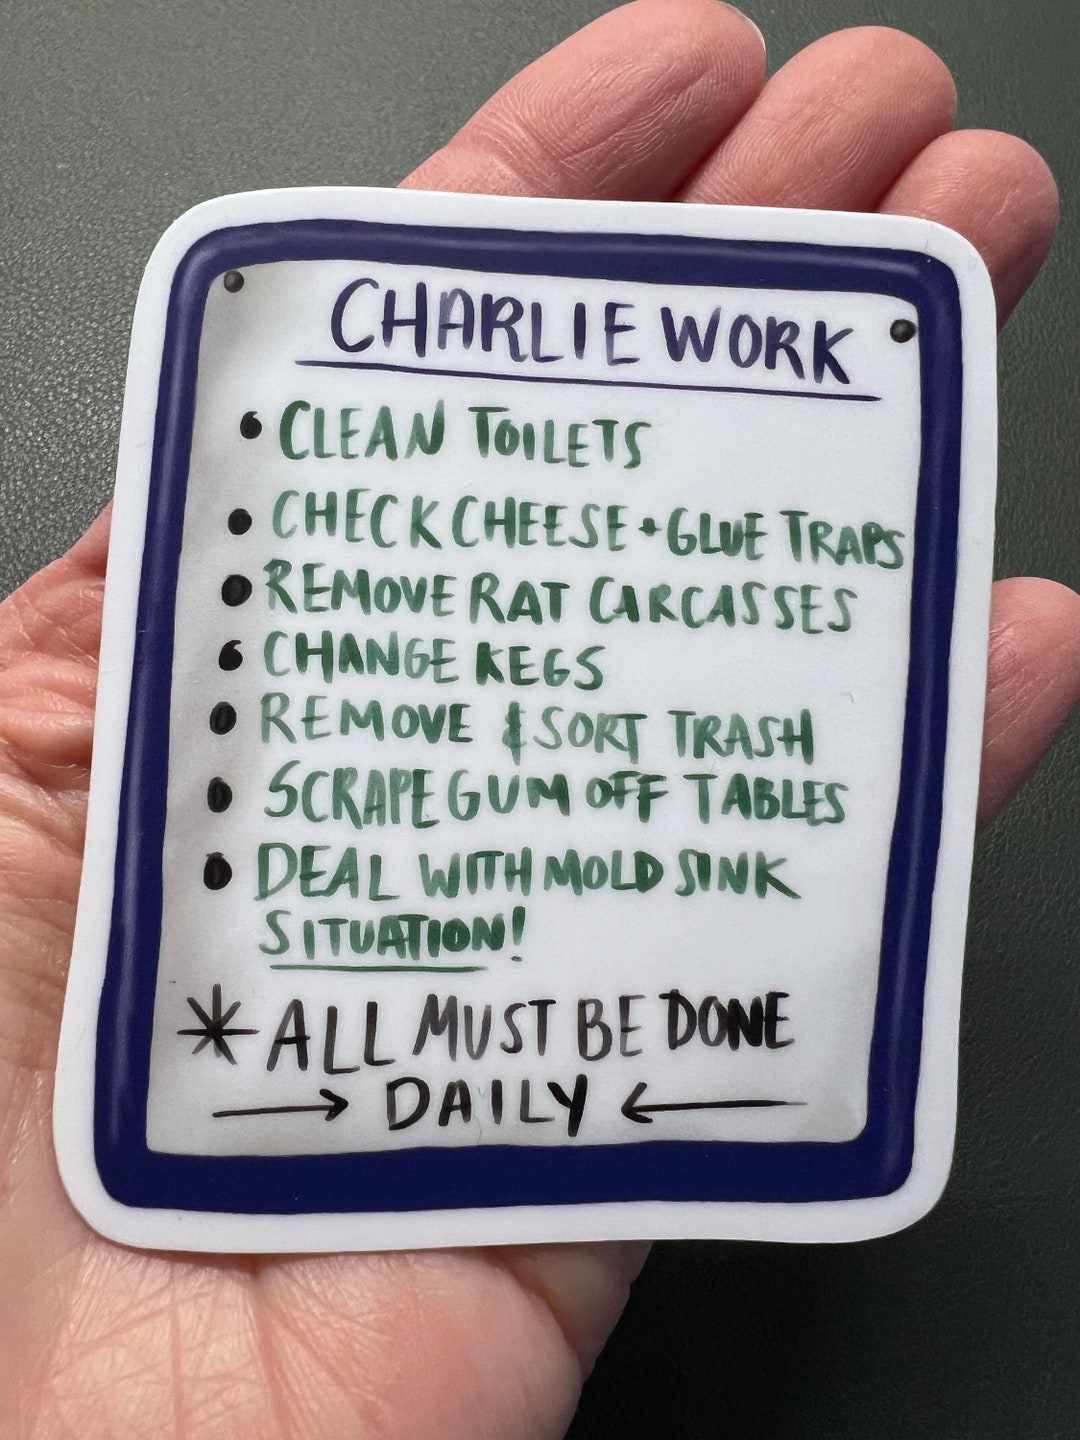 CHARLIE WORK
• CLEAN TOILETS
• CHECK CHEESE + GLUE TRAPS
• REMOVE RAT CARCASSES
• CHANGE KEGS
• REMOVE & SORT TRASH
• SCRAPE GUM OFF TABLES
• DEAL WITH MOLD SINK
SITUATION!
* ALL MUST BE DONE
→ DAILY ←